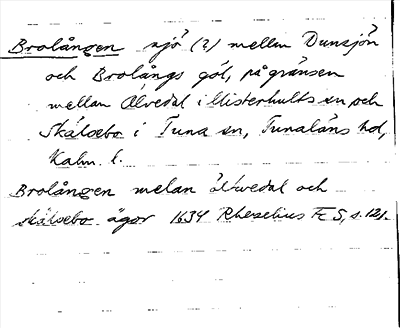 Brolången sjö (?) mellan Dunsjön
och Brolångs göl, på gränsen
mellan Älvedal i Misterhults sn och
Skälsebo i Tuna sn, Tunaläns hd,
Kalm. l.
Brolången melan älwedal och
skälsebo ägor 1634 Rhezelius FS, s. 121.